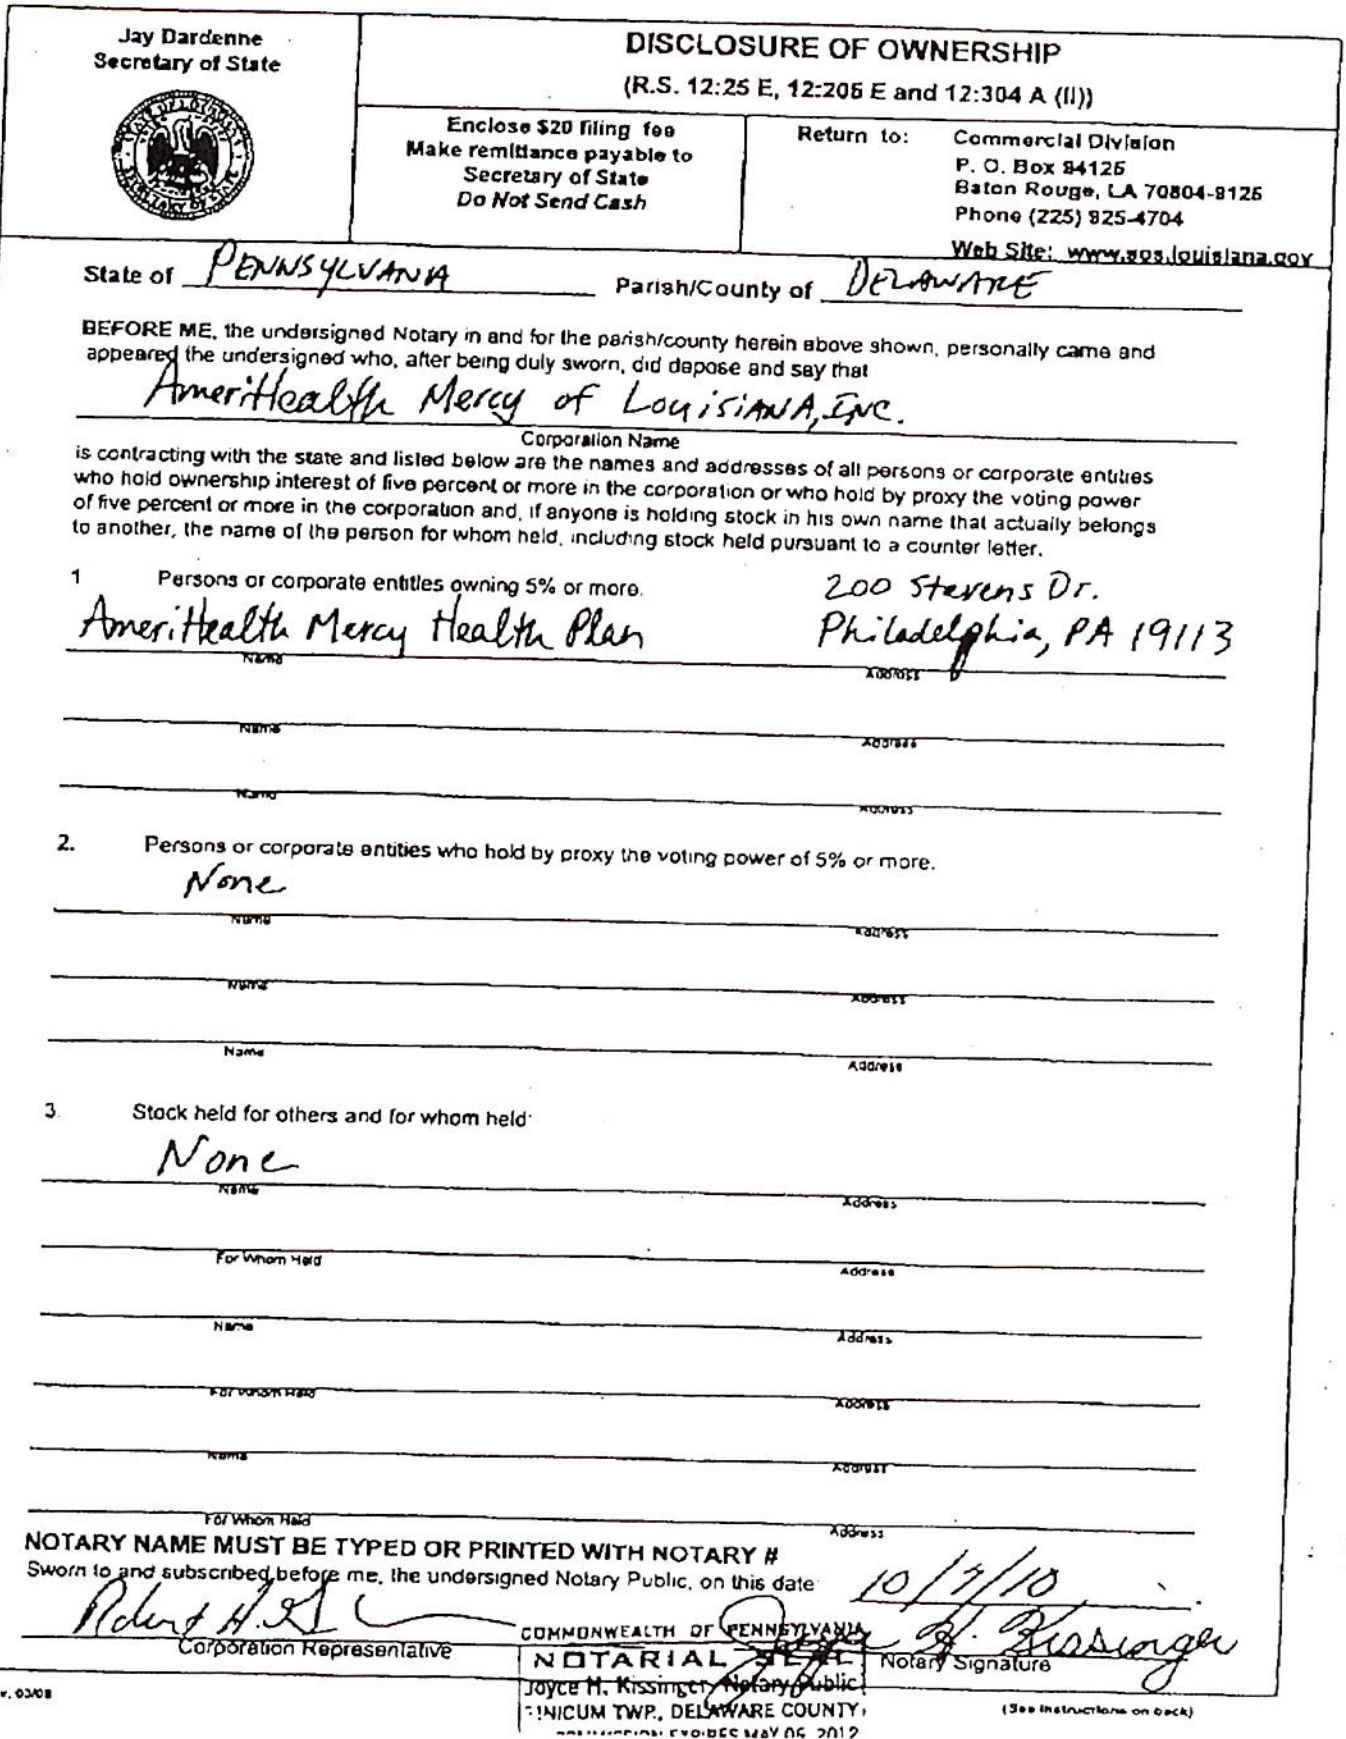 Jay Dardenne
Secretary of State
DISCLOSURE OF OWNERSHIP
(R.S. 12:25 E, 12:205 E and 12:304 A (11))
Enclose $20 filing fee
Make remittance payable to
Secretary of State
Do Not Send Cash
Return to: Commercial Division
P. O. Box 94125
Baton Rouge, LA 70804-9125
Phone (225) 925-4704
Web Site: www.sos.louisiana.gov
State of PENNSYLVANIA Parish/County of DELAWARE
BEFORE ME, the undersigned Notary in and for the parish/county herein above shown, personally came and
appeared the undersigned who, after being duly sworn, did depose and say that
AmeriHealth Mercy of LOUISIANA, INC.
Corporation Name
is contracting with the state and listed below are the names and addresses of all persons or corporate entities
who hold ownership interest of five percent or more in the corporation or who hold by proxy the voting power
of five percent or more in the corporation and, if anyone is holding stock in his own name that actually belongs
to another, the name of the person for whom held, including stock held pursuant to a counter letter.
1 Persons or corporate entitles owning 5% or more.
200 Stevens Dr.
AmeriHealth Mercy Health Plan Philadelphia, PA 19113
Name Address
Name Address
Name Address
2. Persons or corporate entities who hold by proxy the voting power of 5% or more.
None
Name Address
Name Address
Name Address
3. Stock held for others and for whom held:
None
Name Address
For Whom Held Address
Name Address
For Whom Held Address
Name Address
For Whom Held Address
NOTARY NAME MUST BE TYPED OR PRINTED WITH NOTARY #
Sworn to and subscribed before me, the undersigned Notary Public, on this date 10/7/10
Robert H. Joyce H. Kissinger
Corporation Representative Notary Signature
COMMONWEALTH OF PENNSYLVANIA
NOTARIAL SEAL
Joyce H. Kissinger, Notary Public
TINICUM TWP., DELAWARE COUNTY
COMMISSION EXPIRES MAY 06, 2012
v. 03/08
(See instructions on back)